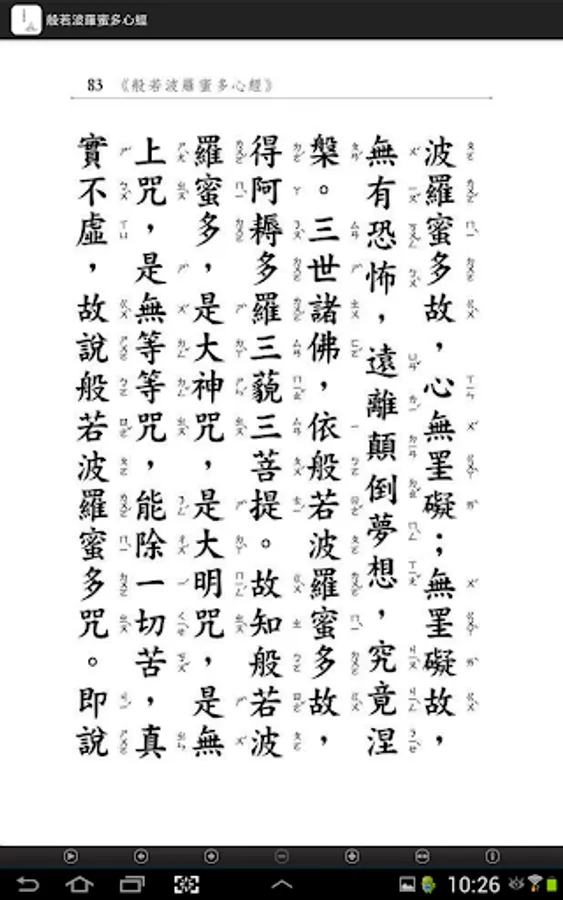 般若波羅蜜多心經
83 《般若波羅蜜多心經》
波羅蜜多故，心無罣礙；無罣礙故，
無有恐怖，遠離顛倒夢想，究竟涅
槃。三世諸佛，依般若波羅蜜多故，
得阿耨多羅三藐三菩提。故知般若波
羅蜜多，是大神咒，是大明咒，是無
上咒，是無等等咒，能除一切苦，真
實不虛，故說般若波羅蜜多咒。即說
10:26